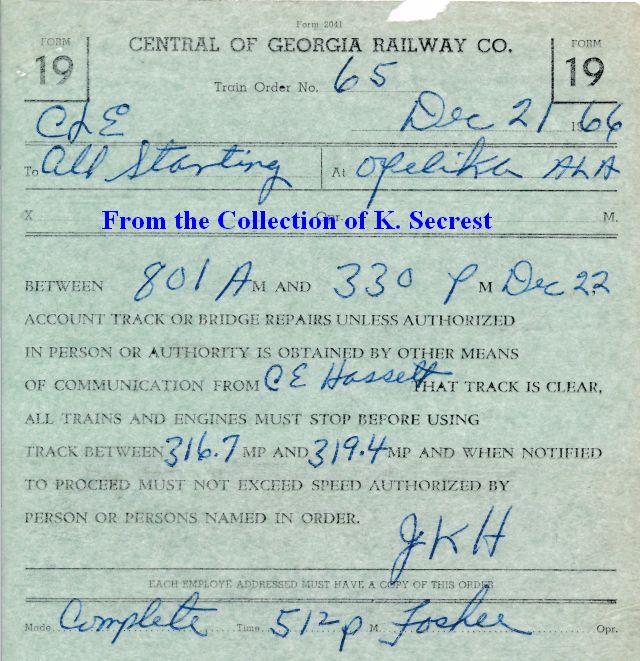 Form 2041
FORM 19 CENTRAL OF GEORGIA RAILWAY CO. FORM 19
Train Order No. 65
C&E Dec 21 1966
To All Starting At Opelika ALA
X Opr. M.
From the Collection of K. Secrest
BETWEEN 801 A M AND 330 P M Dec 22
ACCOUNT TRACK OR BRIDGE REPAIRS UNLESS AUTHORIZED
IN PERSON OR AUTHORITY IS OBTAINED BY OTHER MEANS
OF COMMUNICATION FROM C E Hassett THAT TRACK IS CLEAR,
ALL TRAINS AND ENGINES MUST STOP BEFORE USING
TRACK BETWEEN 316.7 MP AND 319.4 MP AND WHEN NOTIFIED
TO PROCEED MUST NOT EXCEED SPEED AUTHORIZED BY
PERSON OR PERSONS NAMED IN ORDER.
JKH
EACH EMPLOYE ADDRESSED MUST HAVE A COPY OF THIS ORDER
Made Complete Time 512 p M. Foshee Opr.